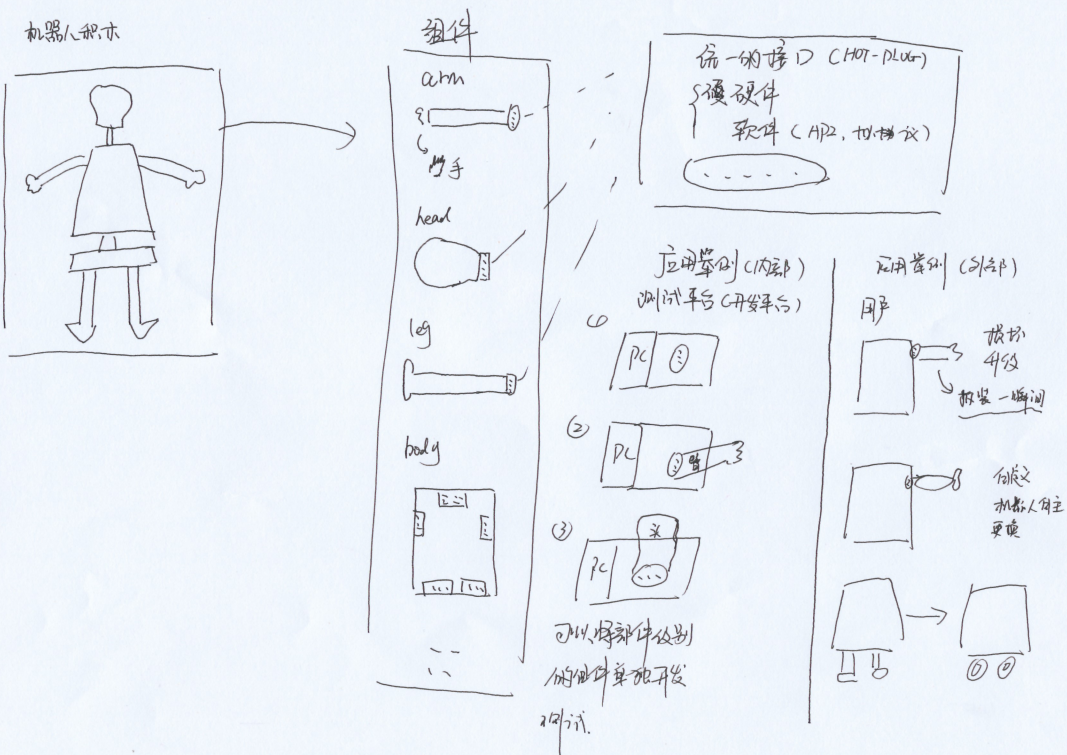 机器人积木
组件
arm
手
head
leg
body
统一的接口 (HOT-PLUG)
硬件
软件 (API, 协议)
应用举例 (内部)
测试平台 (开发平台)
PC
②
PC
臂
③
PC
头
可以将部件级别
的组件单独开发
测试.
应用举例 (外部)
用户
损坏
升级
拆装一瞬间
自定义
机器人自主
更换